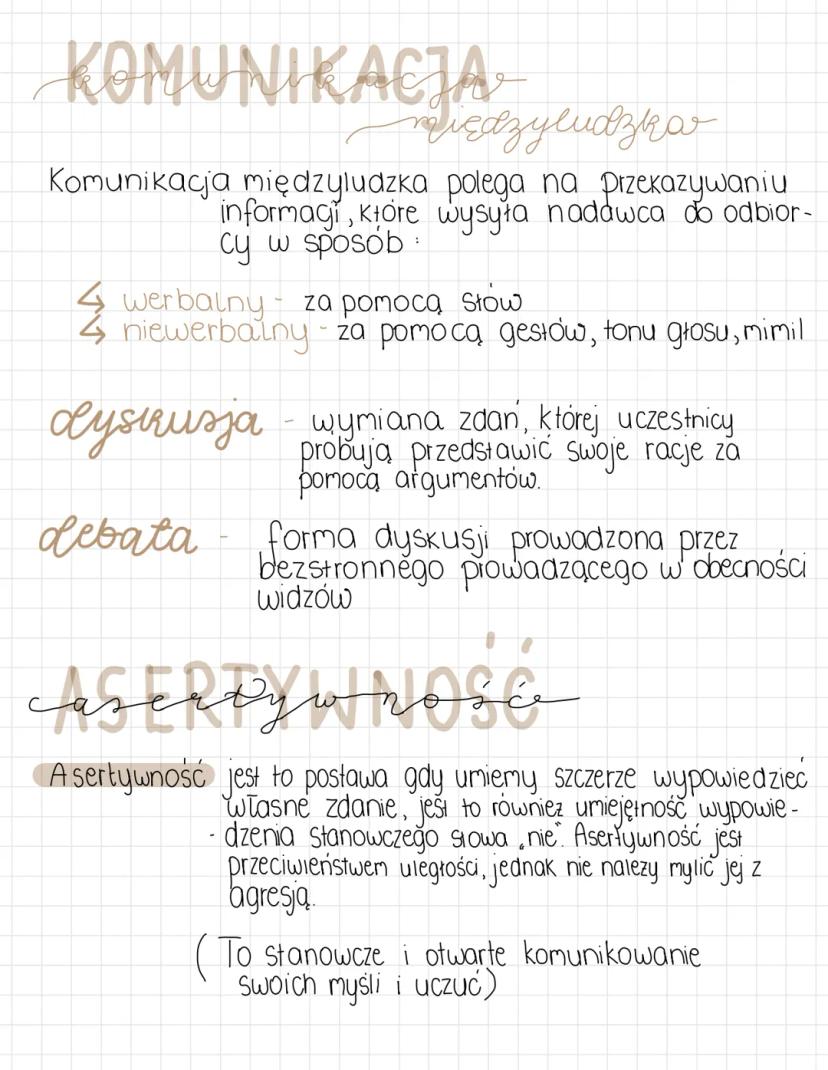 KOMUNIKACJA
komunikacja
międzyludzka
Komunikacja międzyludzka polega na przekazywaniu
informacji, które wysyła nadawca do odbior-
cy w sposób :
↳ werbalny - za pomocą słów
↳ niewerbalny - za pomocą gestów, tonu głosu, mimil
dyskusja - wymiana zdań, której uczestnicy
próbują przedstawić swoje racje za
pomocą argumentów.
debata - forma dyskusji prowadzona przez
bezstronnego prowadzącego w obecności
widzów
ASERTYWNOŚĆ
asertywność
Asertywność jest to postawa gdy umiemy szczerze wypowiedzieć
własne zdanie, jest to również umiejętność wypowie-
- dzenia stanowczego słowa „nie". Asertywność jest
przeciwieństwem uległości, jednak nie należy mylić jej z
agresją.
(To stanowcze i otwarte komunikowanie
swoich myśli i uczuć)